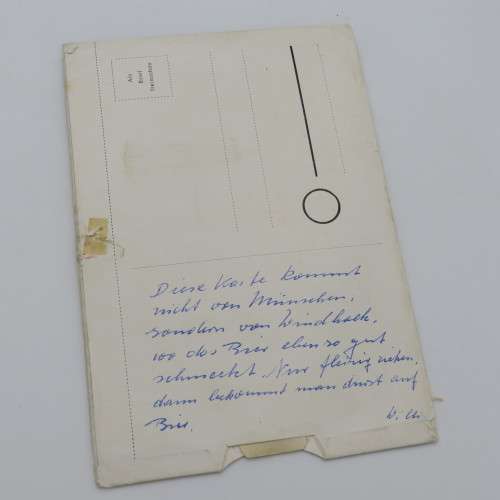 Als
Brief
freimachen
Diese Karte kommt
nicht von München,
sondern von Windhoek,
wo das Bier ebenso gut
schmeckt. Nur fleißig ziehen,
dann bekommt man durst auf
Bier.